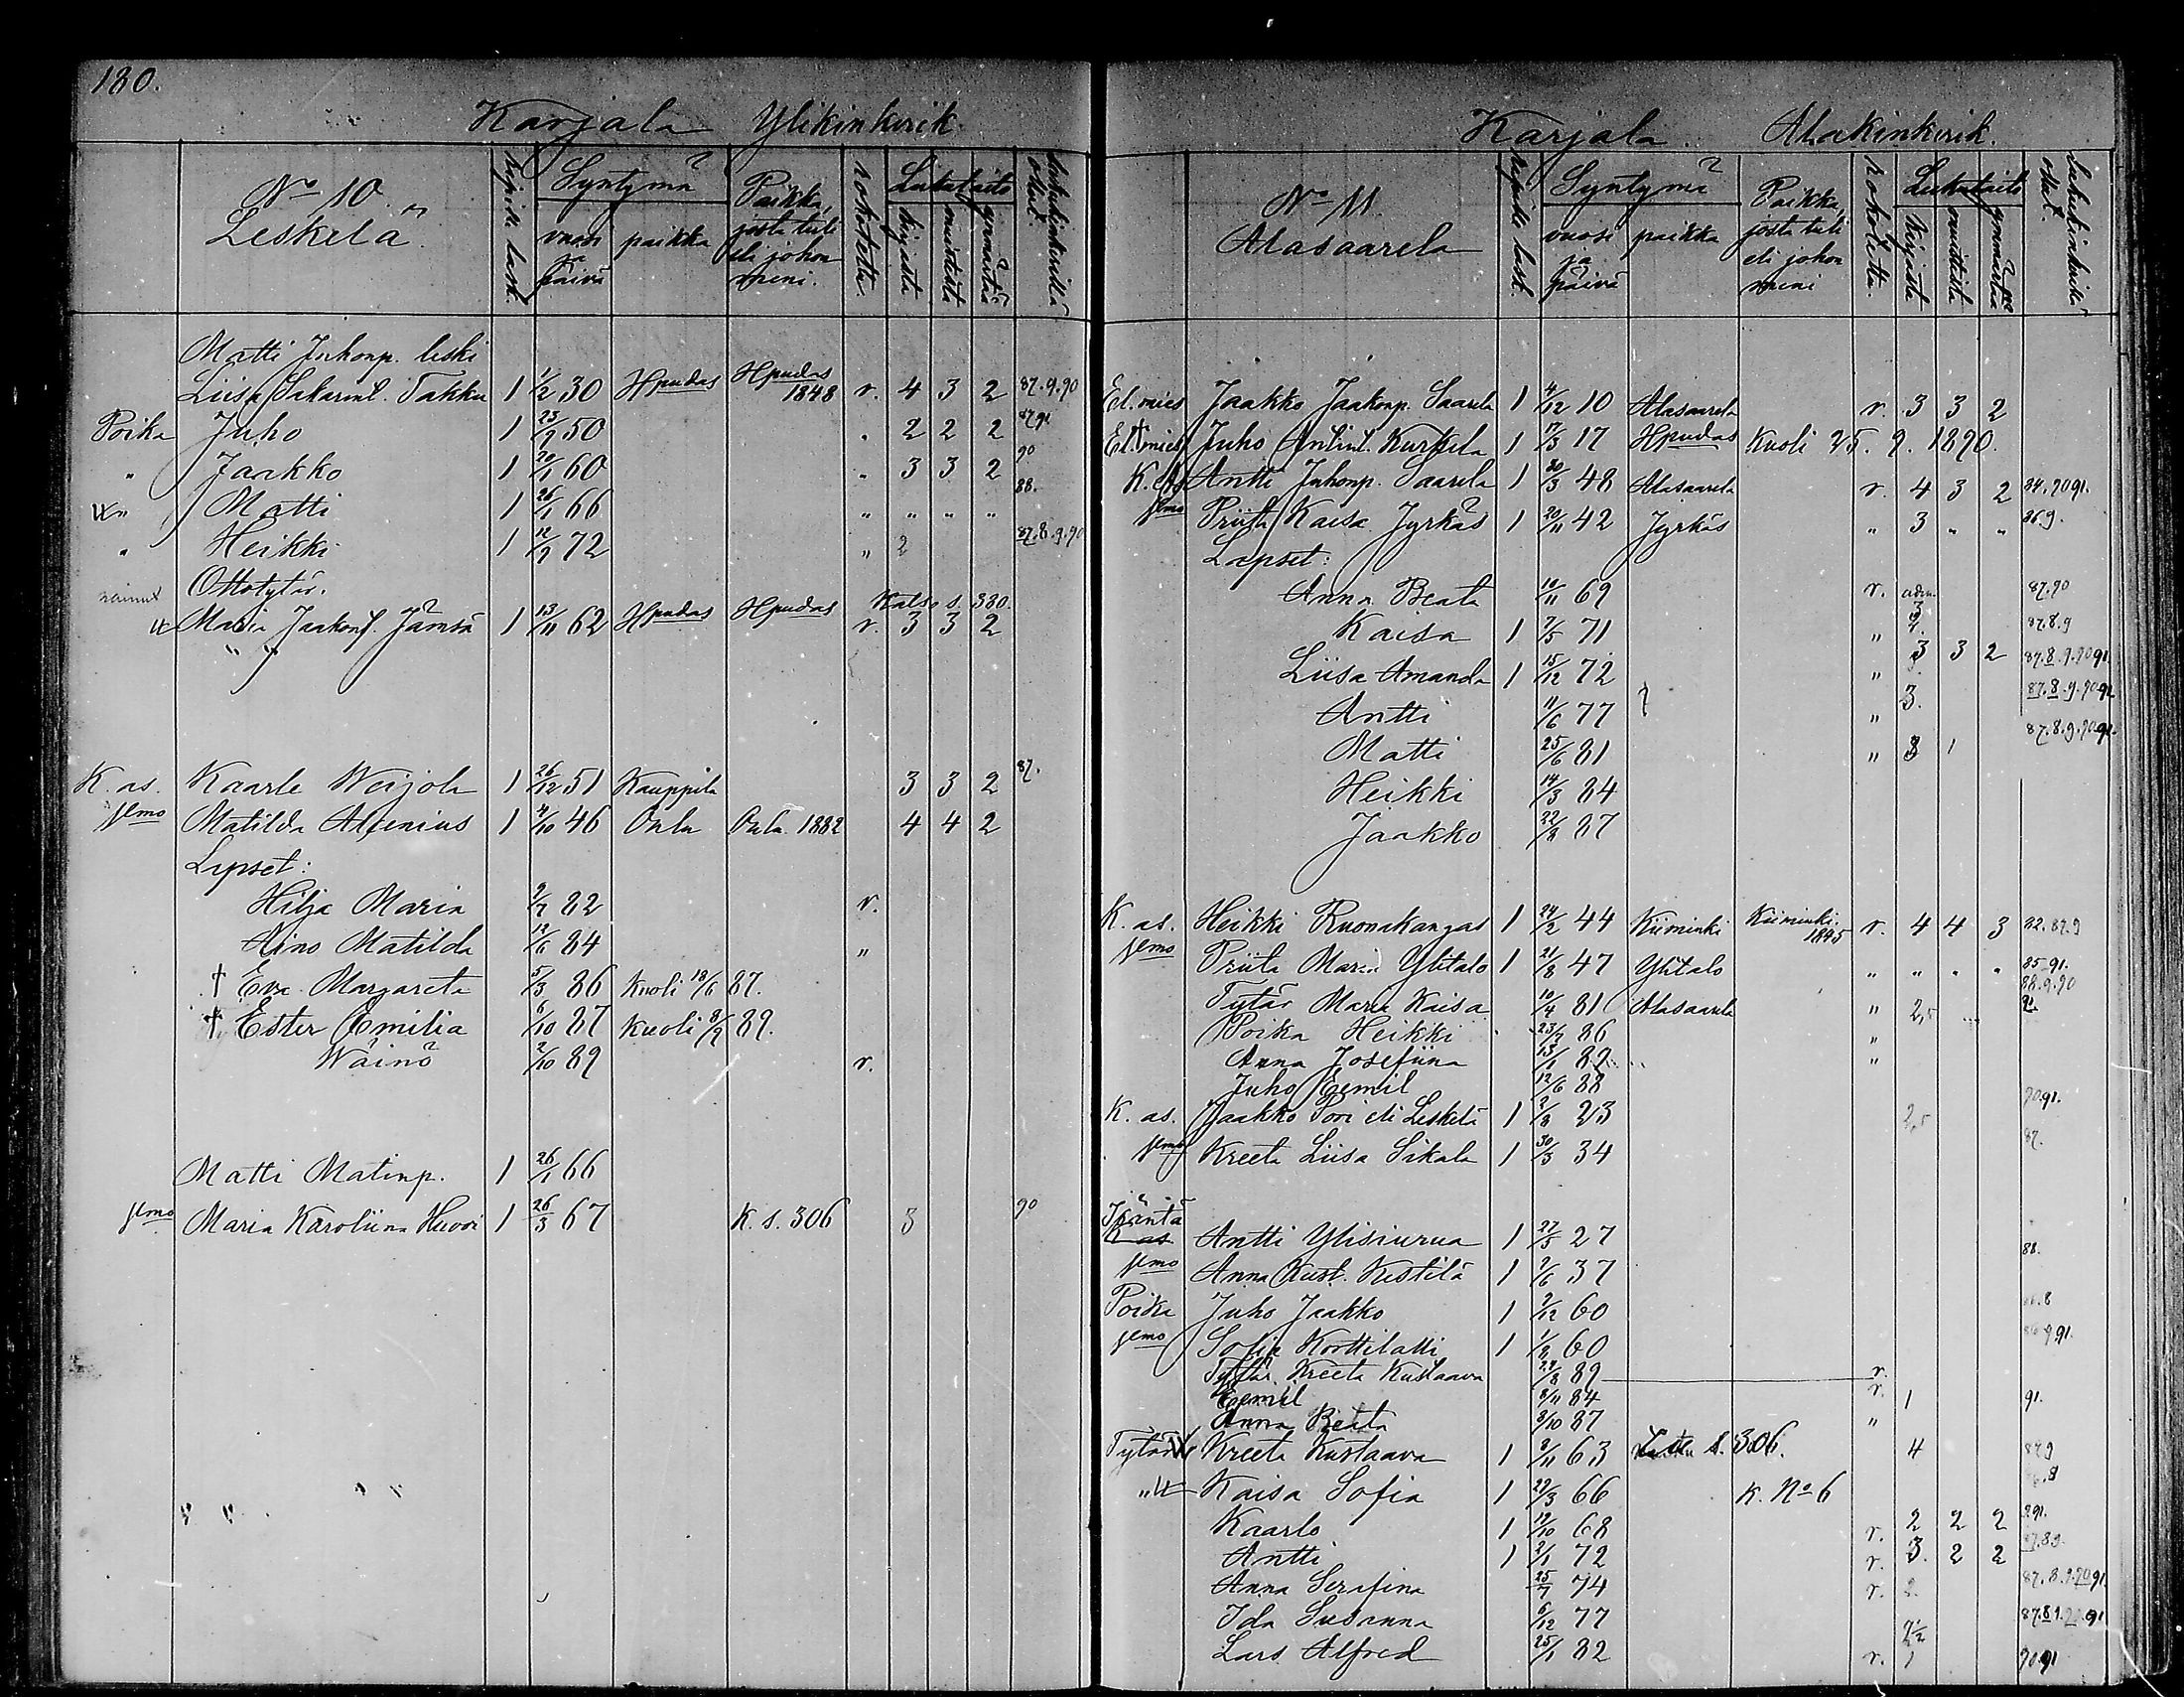 180.
Karjala Ylikinkerik.
No 10. Leskelä.
Syntymä
vuosi ja päivä
paikka
Paikka, josta tuli eli johon meni.
rokotettu.
Lukutaito
kirjasta
muistista
ymmärtää
Matti Juhonp. leski
Liisa Takku 1 1/2 30 Hpudas Hpudas 1848 r. 4 3 2 87.9.90
Poika Juho 1 50 2 2 2
" Jaakko 1 60 3 3 2 90
Matti 1 26/1 66 " " " " 88.
" Heikki 1 12/9 72 " 2 87.8.9.90
Ottotytär. Katso s. 330.
nainut Maria Jaakont. Jämsä 1 13/11 62 Hpudas Hpudas r. 3 3 2
" "
K. as. Kaarle Weijola 1 26/12 51 Kauppila 3 3 2 87.
Matilda 1 4/10 46 Oulu Oulu 1882 4 4 2
Lapset:
Hilja Maria 9/7 82 r.
Aino Matilda 12/6 84 "
† Eva Margareta 5/3 86 Kuoli 18/6 87.
† Ester Emilia 6/10 87 Kuoli 8/9 89.
Wäinö 2/10 89 r.
Matti Matinp. 1 26/1 66
Maria Karoliina Huovi 1 26/3 67 K. s. 306 3 90
Karjala. Alakinkerik.
No 11. Alasaarela
Syntymä
vuosi ja päivä
paikka
Paikka, josta tuli eli johon meni
rokotettu.
Lukutaito
kirjasta
muistista
ymmärtää
El. mies Jaakko Jaakonp. Saarela 1 4/12 10 Alasaarela r. 3 3 2
El. mies † Juho Kurkela 1 17/3 17 Hpudas Kuoli 25. 9. 1890.
K. as. Antti Juhonp. Saarela 1 30/3 48 Alasaarela r. 4 3 2 84.9091.
Priita Kaisa Jyrkäs 1 20/11 42 Jyrkäs " 3 " " 86.9.
Lapset:
Anna Beata 10/11 69 r. 87.90
Kaisa 1 7/5 71 " 87.8.9
Liisa Amanda 1 15/12 72 " 3 3 2 87.8.9.9091.
Antti 11/6 77 " 3. 87.8.9.9091.
Matti 25/6 81 " 3 1 87.8.9.9091.
Heikki 14/3 84
Jaakko 87
K. as. Heikki Ruonakangas 1 24/2 44 Kiiminki Kiiminki r. 4 4 3 82.87.9
Priita Maria Ylitalo 1 21/8 47 Ylitalo " " " " 85-91.
Tytär Maria Kaisa 10/4 81 Alasaarela " 2,5 88.9.90
Poika Heikki 23/7 86 "
Anna Josefiina "
Juho Eemil 12/6 88
K. as. Jaakko Pori eli Leskelä 1 2/8 23 2,5 90.91.
Kreeta Liisa Sikala 1 30/3 34 87.
Antti Ylisiurua 1 27/5 27 88.
Anna Kust. Kestilä 1 7/6 37
Poika Juho Jaakko 1 7/12 60
Sofia Korttilatti 1 1/8 60
Tytär Kreeta Kustaava 89 r.
Eemil 8/11 84 r. 1 91.
Anna Beata 8/10 87 "
Tytär Kreeta Kustaava 1 8/11 63 s. 306. 4
Kaisa Sofia 1 29/3 66 K. No 6
Kaarlo 1 19/10 68 r. 2 2 2
Antti 1 2/1 72 r. 3. 2 2
Anna Serafina 25/7 74 r. 2 87.8.9.9091.
Ida Susanna 6/12 77 2½
Lars Alfred 25/1 82 r. 1 9091